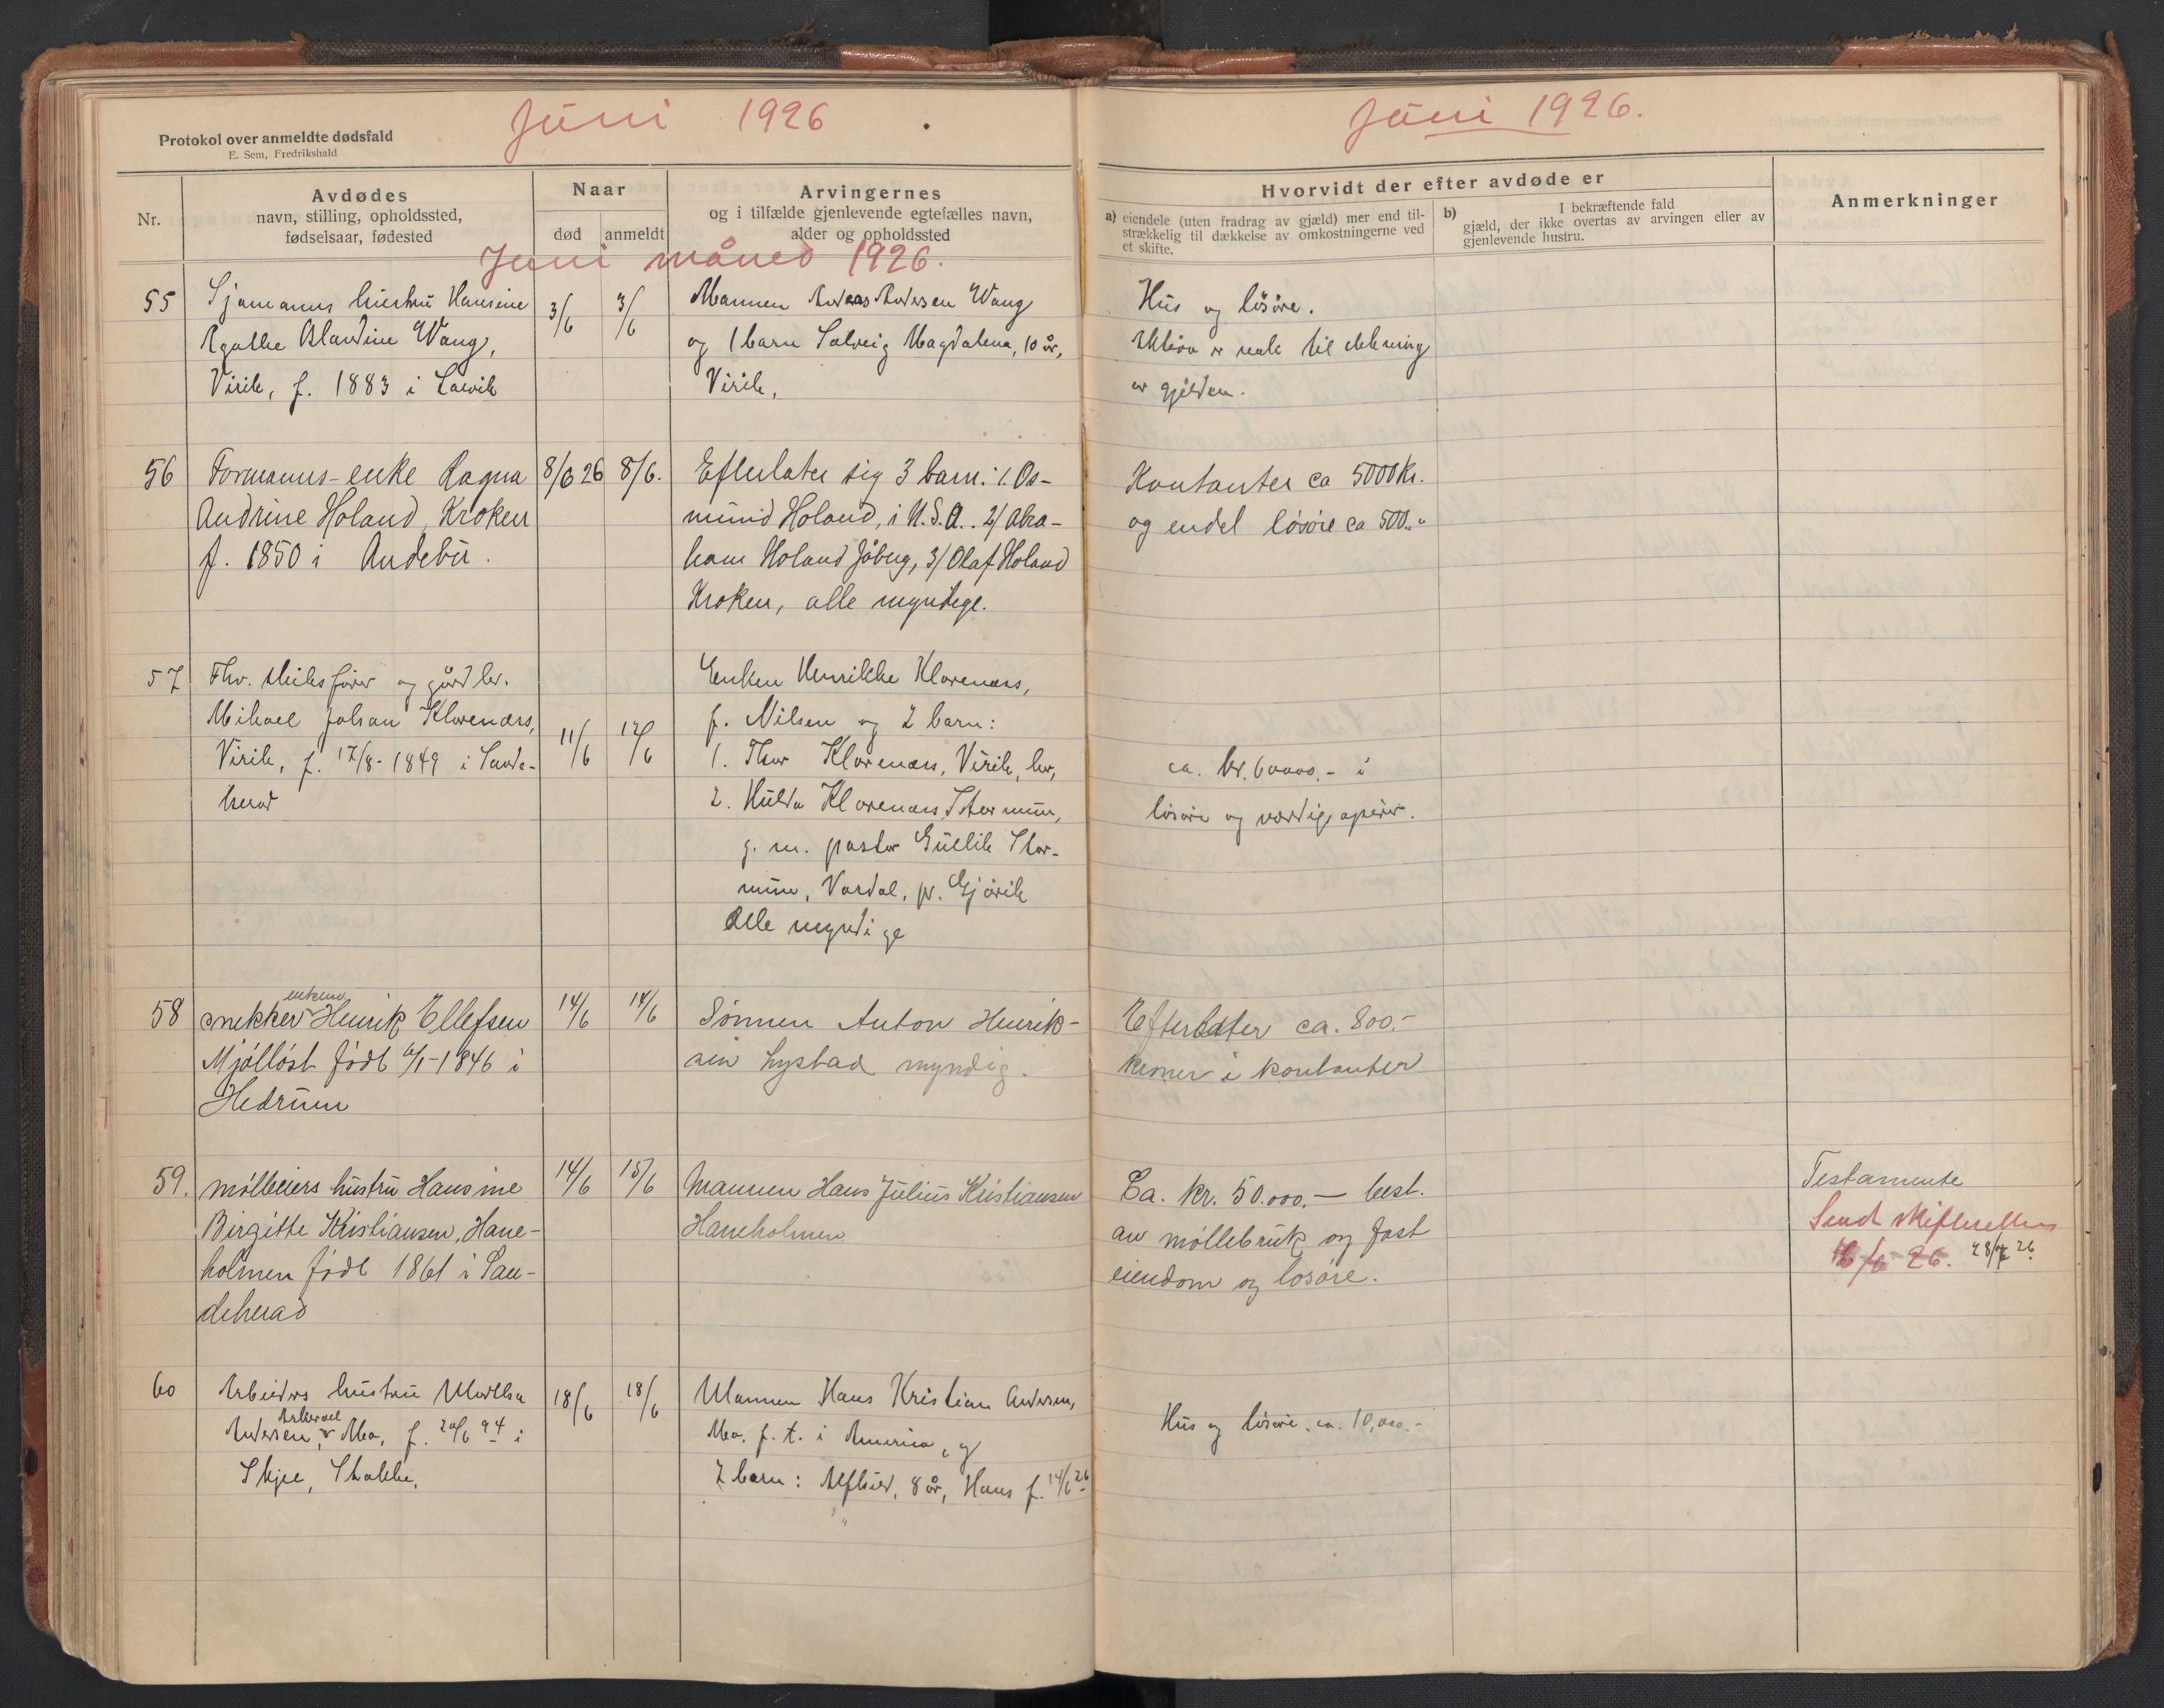 Juni 1926
Juni 1926.
Protokol over anmeldte dødsfald
E. Sem, Fredrikshald
Nr.
Avdødes
navn, stilling, opholdssted,
fødselsaar, fødested
Naar
død
anmeldt
Arvingernes
og i tilfælde gjenlevende egtefælles navn,
alder og opholdssted
Hvorvidt der efter avdøde er
a) eiendele (uten fradrag av gjæld) mer end til-
strækkelig til dækkelse av omkostningerne ved
et skifte.
b) I bekræftende fald
gjæld, der ikke overtas av arvingen eller av
gjenlevende hustru.
Anmerkninger
Juni måned 1926.
55
Sjømanns hustru Hansine
Agathe Blandine Wang,
Virik, f. 1883 i Larvik
3/6
3/6
Mannen Andreas Andersen Wang
og 1 barn Solveig Magdalena, 10 år,
Virik,
Hus og løsøre.
til dekning
av gjelden.
56
Formanns-enke Ragna
Andrine Holand, Kroken
f. 1850 i Andebu.
8/6 26
8/6.
Efterlater sig 3 barn: 1. Os-
mund Holand, i U.S.A.. 2/ Abra-
ham Holand Jåberg, 3/ Olaf Holand
Kroken, alle myndige.
Kontanter ca 5000 Kr.
og endel løsøre ca 500.."
57
Fhv. skibsfører og gårdbr.
Mikael Johan Klavenæs,
Virik, f. 17/8-1849 i Sande-
herad
11/6
12/6
Enken Henrikke Klavenæs,
f. Nilsen og 2 barn:
1. Thor Klavenæs, Virik,
2. Hulda Klavenæs Stormun,
g. m. pastor Gullik Stor-
mun, Vardal, pr. Gjøvik
Alle myndige
ca. kr. 60000.- i
løsøre og værdipapirer.
58
enkem
snekker Henrik Ellefsen
Mjølløst født 6/1-1846 i
Hedrum
14/6
14/6
Sønnen Anton Henrik-
sen Lystad myndig.
Efterlater ca. 800.-
kroner i kontanter
59.
mølleiers hustru Hansine
Birgitte Kristiansen, Hane-
holmen født 1861 i San-
deherad
14/6
15/6
Mannen Hans Julius Kristiansen
Haneholmen
Ca. kr. 50.000.- best.
av møllebruk og fast
eiendom og løsøre.
Testamente
Sendt skifteretten
16/6-26. 28/7 26.
60
Arbeiders hustru Martha
Andersen, Mo, f. 20/6 94 i
Skjee, Stokke.
18/6
18/6
Mannen Hans Kristian Andersen,
Mo. f. t. i America, og
2 barn: Alfhild, 8 år, Hans f. 14/6 26
Hus og løsøre, ca. 10,000.-